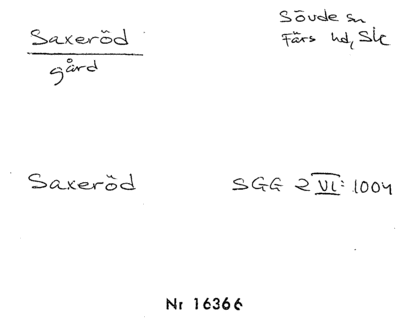 Saxeröd
gård
Sövde sn
Färs hd, Sk
Saxeröd
SGG 2 VI: 1004
Nr 16366